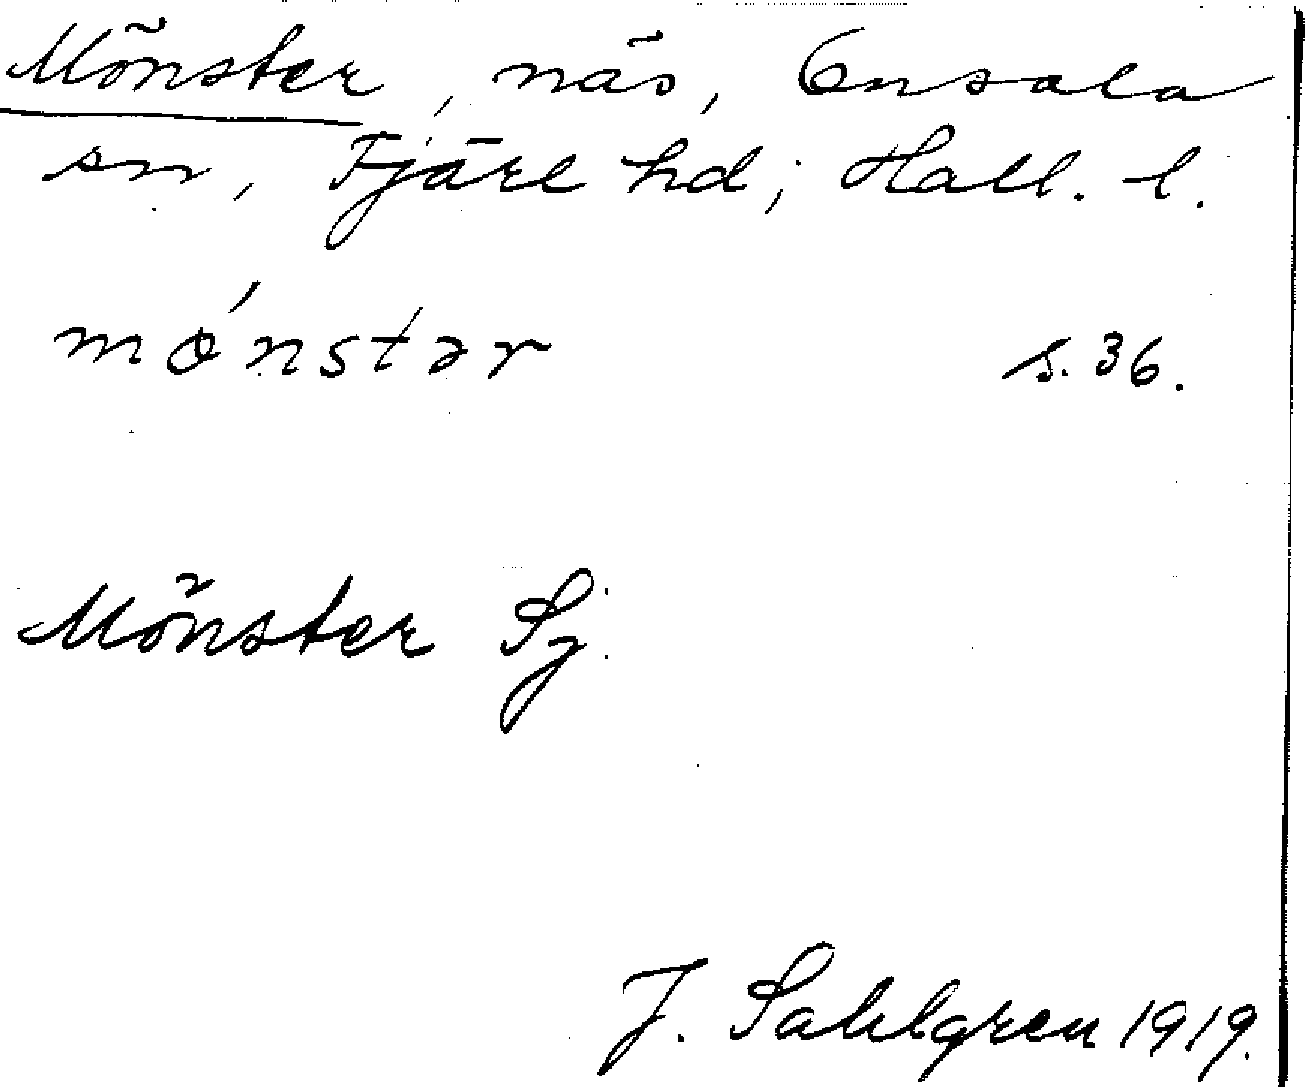 Mönster, näs, Onsala
sn, Fjäre hd; Hall. l.
mǿnstər s. 36.
Mönster Sj.
J. Sahlgren 1919.